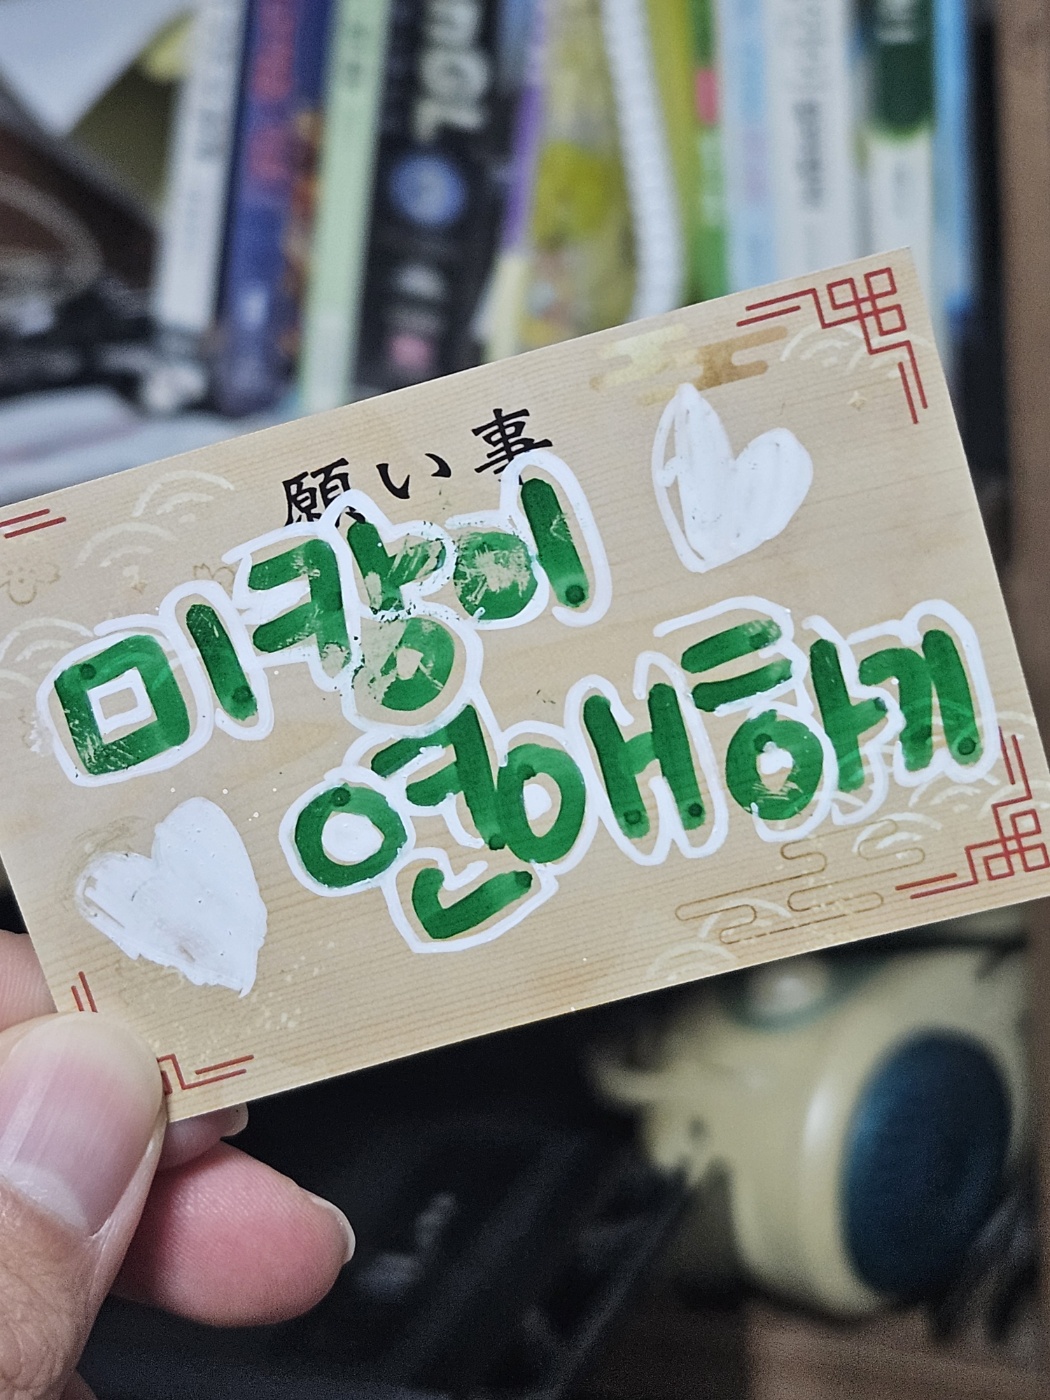 願い事
미캉이
연애하기